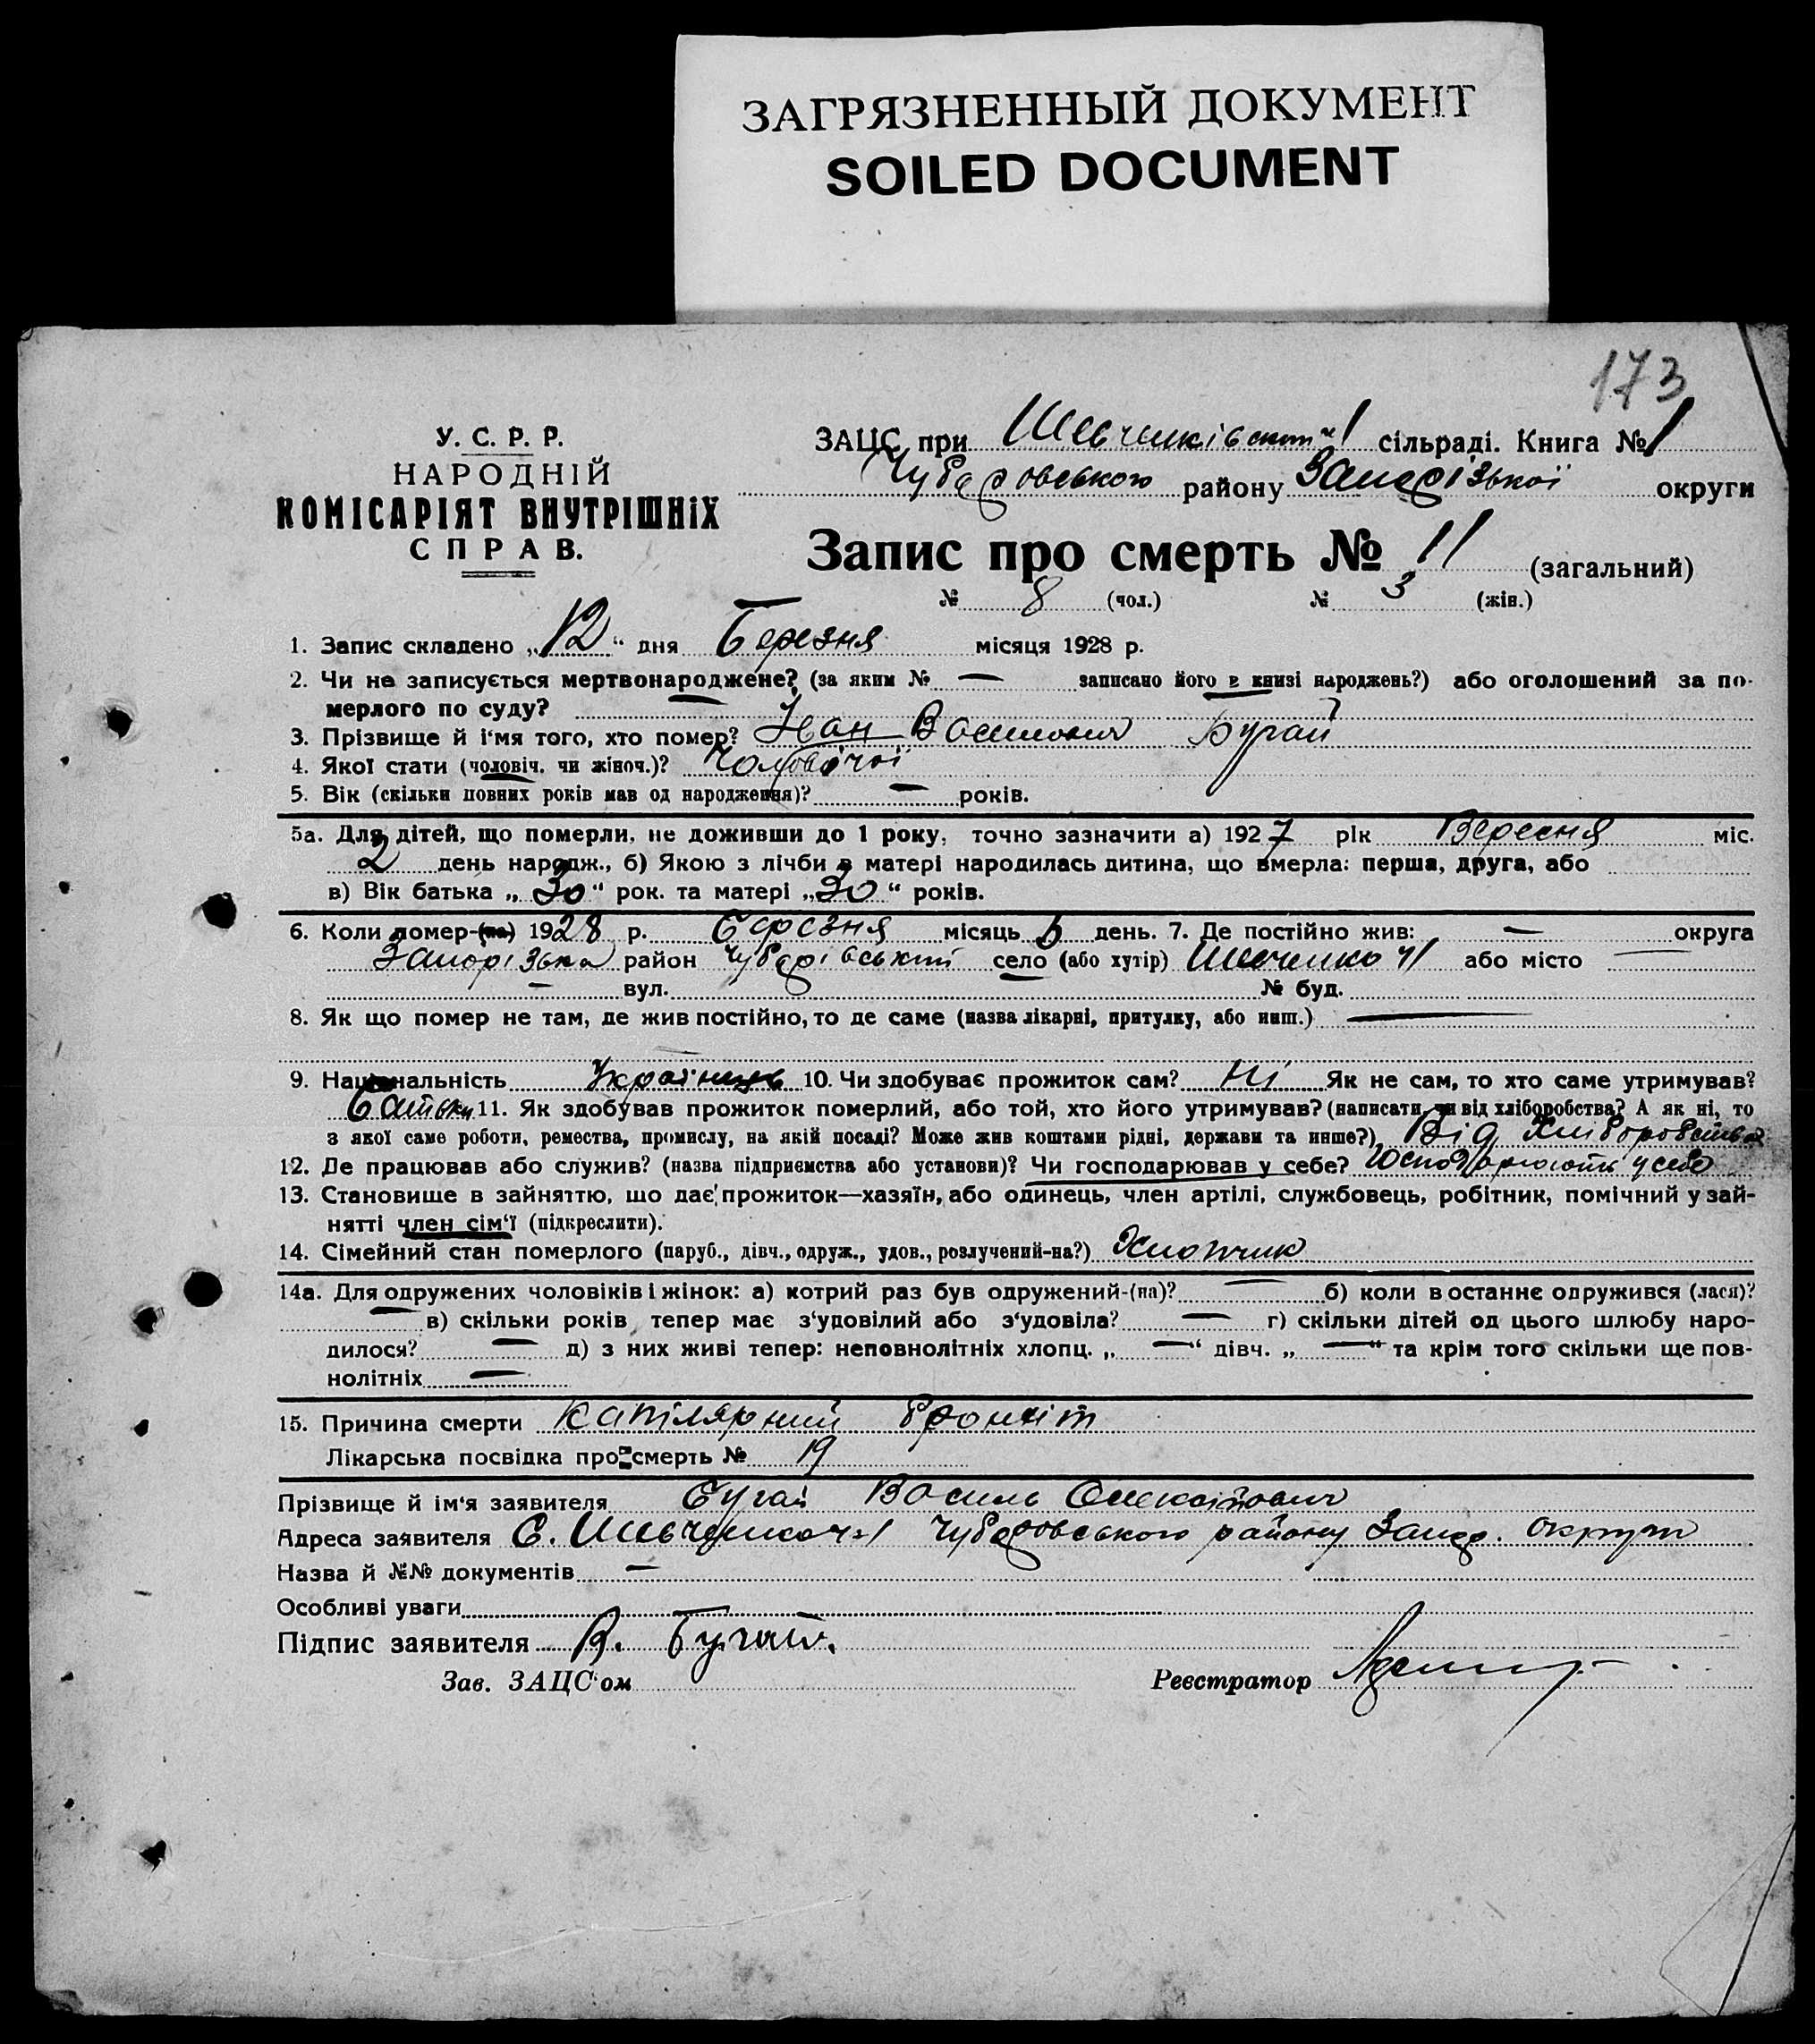 ЗАГРЯЗНЕННЫЙ ДОКУМЕНТ
SOILED DOCUMENT
173
У. С. Р. Р.
НАРОДНІЙ
КОМІСАРІЯТ ВНУТРІШНІХ
СПРАВ.
ЗАЦС при сільраді. Книга № 1
Чубаровського району Запорізької округи
Запис про смерть № 11 (загальний)
№ 8 (чол.) № 3 (жін.)
1. Запис складено „12" дня Березня місяця 1928 р.
2. Чи не записується мертвонароджене? (за яким № — записано його в книзі народжень?) або оголошений за по-
мерлого по суду? —
3. Прізвище й і'мя того, хто помер? Іван Васильович Бугай
4. Якої стати (чоловіч. чи жіноч.)? Чоловічої
5. Вік (скільки повних років мав од народження)? — років.
5а. Для дітей, що померли, не доживши до 1 року, точно зазначити а) 1927 рік Вересня міс.
2 день народж., б) Якою з лічби в матері народилась дитина, що вмерла: перша, друга, або
в) Вік батька „30" рок. та матері „30" років.
6. Коли помер-(ла) 1928 р. Березня місяць день. 7. Де постійно жив: — округа
Запорізька район Чубарівський село (або хутір) Шевченко або місто —
— вул. № буд.
8. Як що помер не там, де жив постійно, то де саме (назва лікарні, притулку, або инш.) —
9. Національність Українець 10. Чи здобуває прожиток сам? Ні Як не сам, то хто саме утримував?
Батьки 11. Як здобував прожиток померлий, або той, хто його утримував? (написати, чи від хліборобства? А як ні, то
з якої саме роботи, ремества, промислу, на якій посаді? Може жив коштами рідні, держави та инше?) Від Хліборобства
12. Де працював або служив? (назва підприємства або установи)? Чи господарював у себе? Господарюють у себе
13. Становище в зайняттю, що дає прожиток—хазяїн, або одинець, член артілі, службовець, робітник, помічний у зай-
нятті член сім'ї (підкреслити).
14. Сімейний стан померлого (паруб., дівч., одруж., удов., розлучений-на?) Хлопчик
14а. Для одружених чоловіків і жінок: а) котрий раз був одружений-(на)? — б) коли в останнє одружився (лася)?
— в) скільки років тепер має з'удовілий або з'удовіла? — г) скільки дітей од цього шлюбу наро-
дилося? — д) з них живі тепер: неповнолітніх хлопц. „—" дівч. „—" та крім того скільки ще пов-
нолітніх —
15. Причина смерти Капілярний бронхіт
Лікарська посвідка про смерть № 19
Прізвище й ім'я заявителя Бугай Василь
Адреса заявителя С. Шевченко Чубаровського району Запор. округи
Назва й №№ документів —
Особливі уваги
Підпис заявителя В. Бугай.
Зав. ЗАЦС'ом Реєстратор